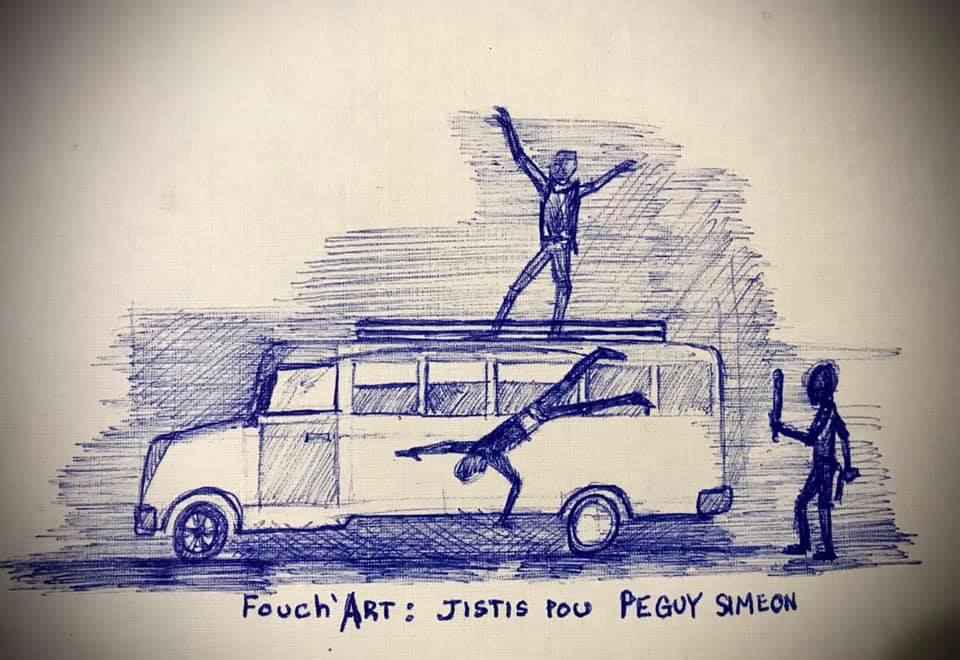 Fouch'ART: JISTIS POU PEGUY SIMEON